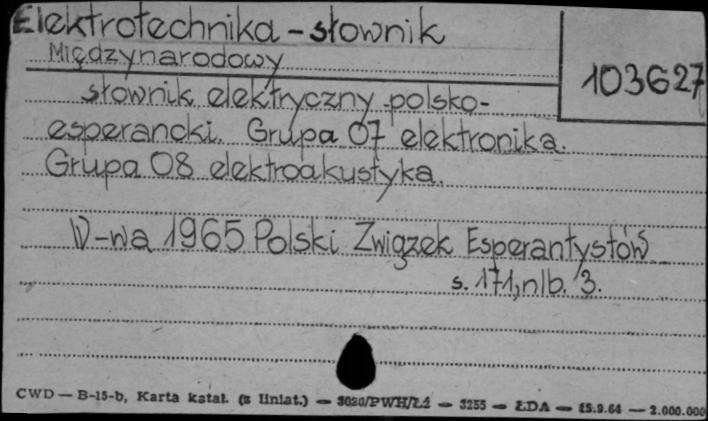 Elektrotechnika - słownik
Międzynarodowy
103627
słownik elektryczny polsko-
esperancki. Grupa 07 elektronika.
Grupa 08 elektroakustyka.
W-wa 1965 Polski Związek Esperantystów
s. 171, nlb. 3.
CWD — B-15-b, Karta katal. (z liniat.) — 3020/PWH/Ł1 — 3255 — ŁDA — 15.9.64 — 2.000.000